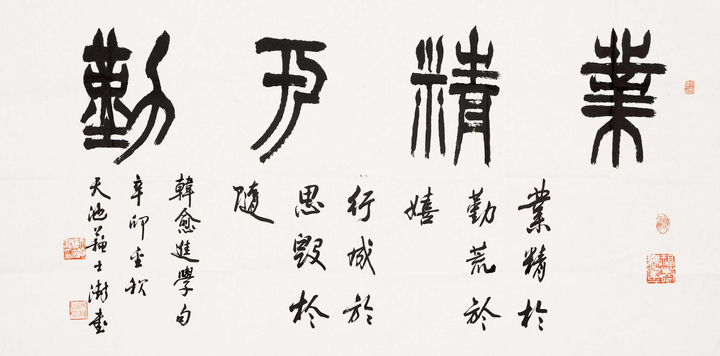 業精于勤
業精於
勤荒於
嬉
行成於
思毀於
隨
韓愈進學句
辛卯金秋
天池蘇士澍書